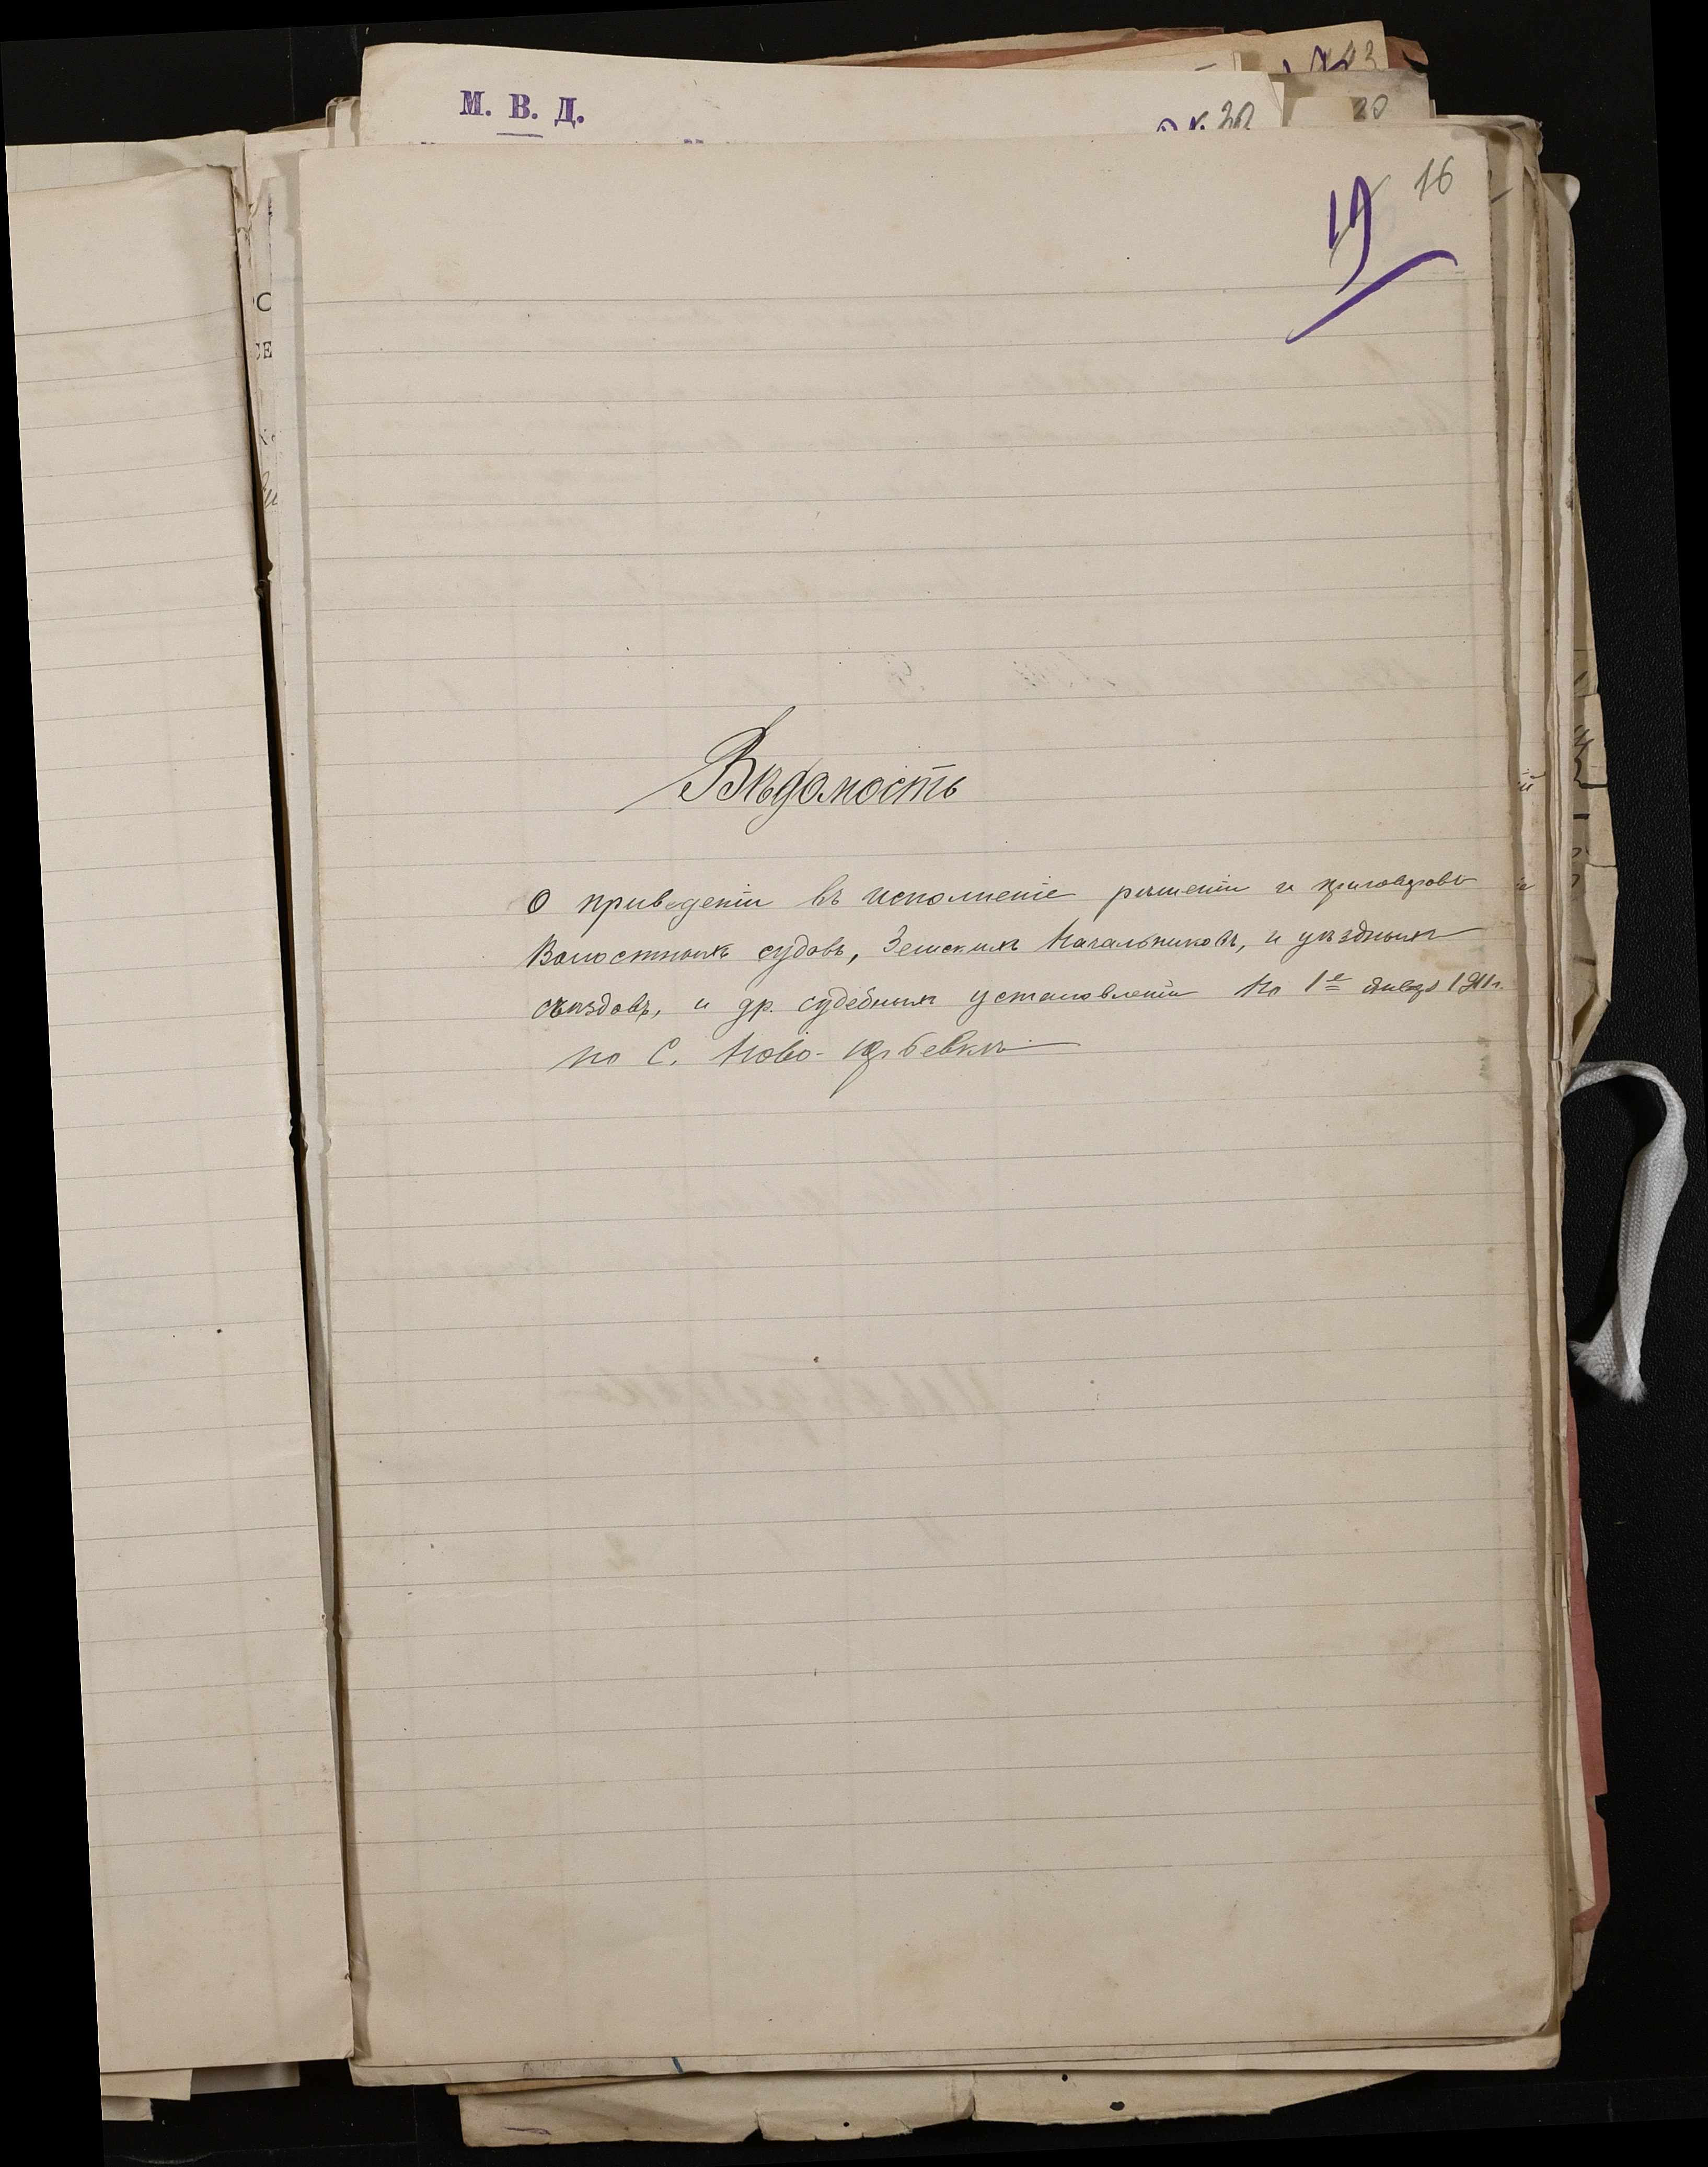 М. В. Д.
20
16
19
Вѣдомость
О приведеніи въ исполненіе рѣшеніи и приговоровъ
Волостныхъ судовъ, Земскихъ Начальниковъ, и уѣздныхъ
съѣздовъ, и др. судебныхъ установленіи по 1е Января 1911 г.
по С. Ново-